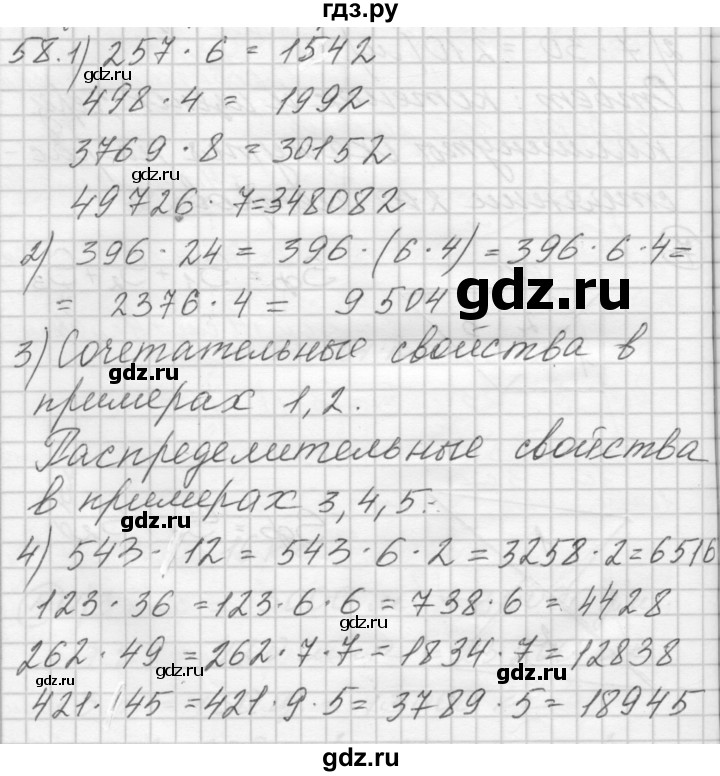 гдз.ру
58.1) 257 · 6 = 1542
gdz.ru
498 · 4 = 1992
3769 · 8 = 30152
49726 · 7 = 348082
gdz.ru
2) 396 · 24 = 396 · (6 · 4) = 396 · 6 · 4 =
= 2376 · 4 = 9504
gdz.ru
3) Сочетательные свойства в
gdz.ru
примерах 1, 2.
Распределительные свойства
в примерах 3, 4, 5.
gdz.ru
4) 543 · 12 = 543 · 6 · 2 = 3258 · 2 = 6516
123 · 36 = 123 · 6 · 6 = 738 · 6 = 4428
262 · 49 = 262 · 7 · 7 = 1834 · 7 = 12838
gdz.ru
gdz.ru
421 · 45 = 421 · 9 · 5 = 3789 · 5 = 18945
gdz.ru